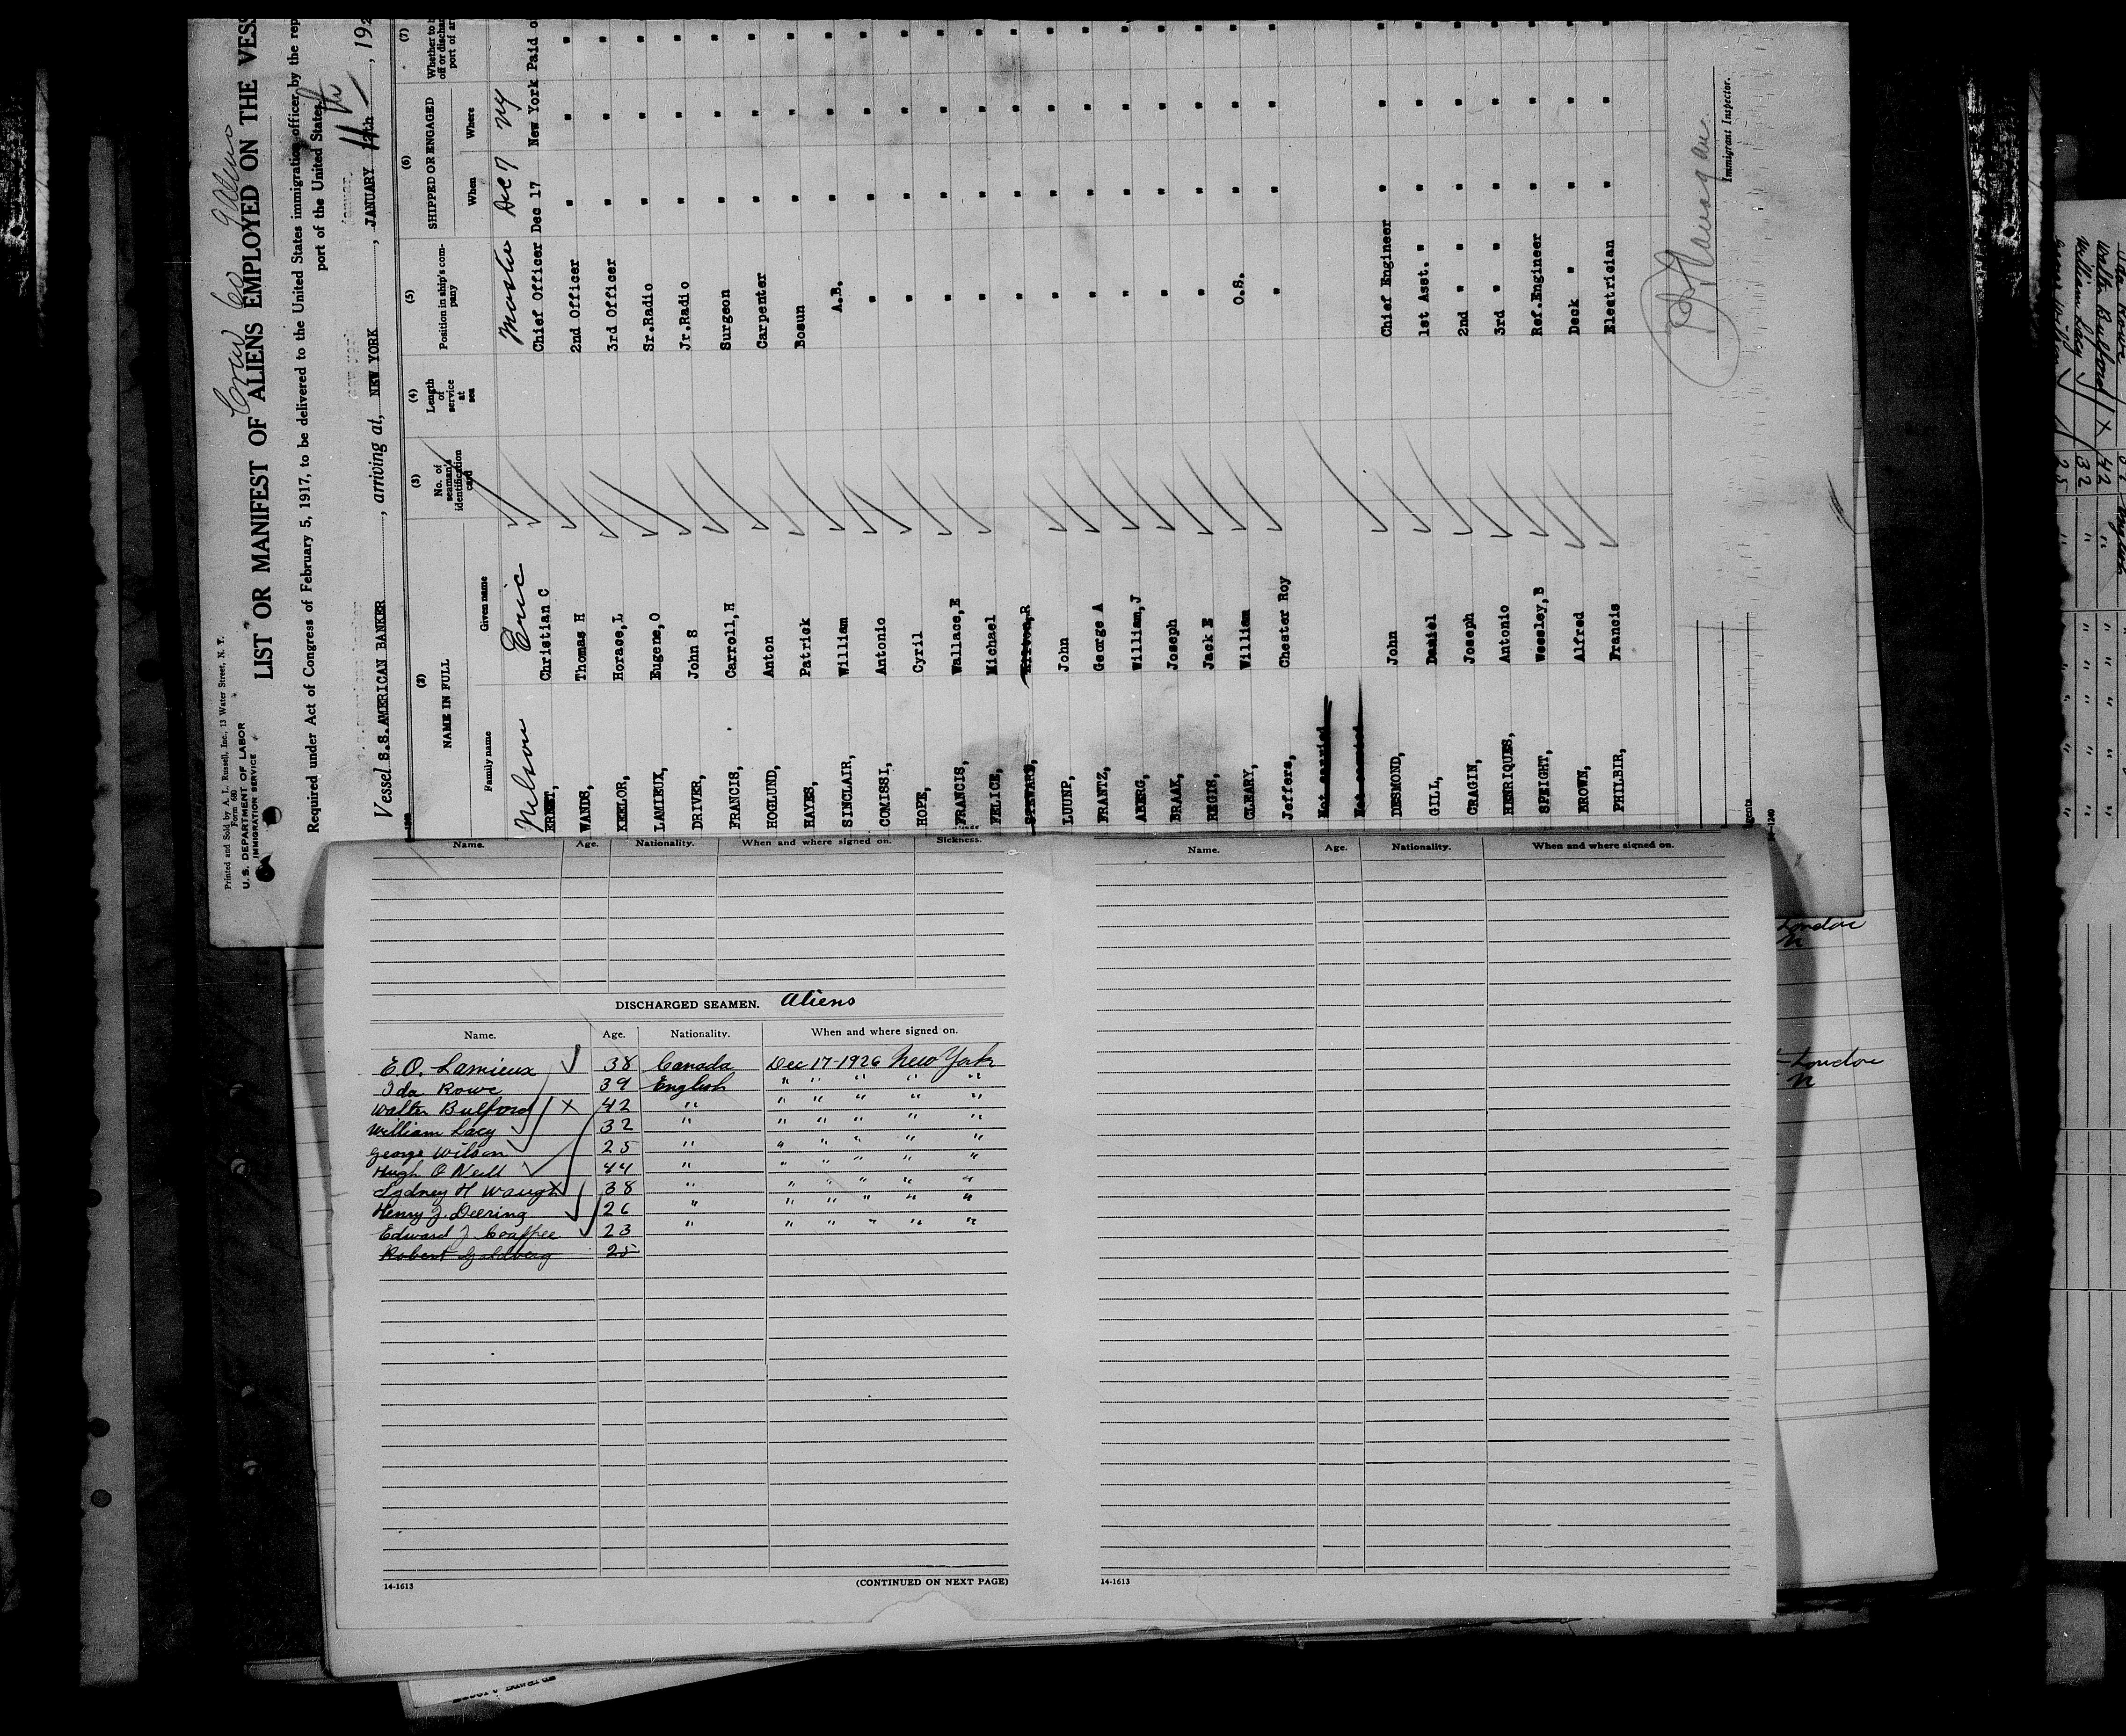 Printed and Sold by A. L. Russell, Inc., 13 Water Street, N. Y.
Form 680
U. S. DEPARTMENT OF LABOR
IMMIGRATION SERVICE
Crew Co Aliens
LIST OR MANIFEST OF ALIENS EMPLOYED ON THE VESS
Required under Act of Congress of February 5, 1917, to be delivered to the United States immigration officer by the rep
port of the United States
Vessel S.S. AMERICAN BANKER, arriving at, NEW YORK, JANUARY 11th, 192
(2) (3) (4) (5) (6) (7)
NAME IN FULL No. of seaman's identification card Length of service at sea Position in ship's company SHIPPED OR ENGAGED Whether to b off or dischar port of ar
Family name Given name When Where
Nelson Eric Master Dec 17 NY
ERNST, Christian C Chief Officer Dec 17 New York Paid o
WANDS, Thomas H 2nd Officer " " "
KEELOR, Horace, L 3rd Officer " " "
LAMIEUX, Eugene, O Sr. Radio " " "
DRIVER, John S Jr. Radio " " "
FRANCIS, Carroll, H Surgeon " " "
HOGLUND, Anton Carpenter " " "
HAYES, Patrick Bosun " " "
SINCLAIR, William A.B. " " "
COMISSI, Antonio " " " "
HOPE, Cyril " " " "
FRANCIS, Wallace, E " " " "
FELICE, Michael " " " "
STEWARD, Milton, R " " " "
LUUNP, John " " " "
FRANTZ, George A " " " "
ABERG, William, J " " " "
BRAAK, Joseph " " " "
REGIS, Jack E " " " "
CLEARY, William O.S. " " "
Jeffers, Chester Roy " " " "
Not carried
Not carried
DESMOND, John Chief Engineer " " "
GILL, Daniel 1st Asst. " " " "
CRAGIN, Joseph 2nd " " " " "
HENRIQUES, Antonio 3rd " " " " "
SPEIGHT, Wessley, B Ref. Engineer " " "
BROWN, Alfred Deck " " " "
PHILBIR, Francis Electrician " " "
Immigrant Inspector.
Agents
14-1240
Name. Age. Nationality. When and where signed on. Sickness.
DISCHARGED SEAMEN. Aliens
Name. Age. Nationality. When and where signed on.
E.O. Lamieux 38 Canada Dec 17-1926 New York
Ida Rowe 39 English " " " " "
Walter Bulford X 42 " " " " " "
William Lacy 32 " " " " "
George Wilson 25 " " " " " "
Hugh O Neill 44 " " " " " "
Sydney H Waugh 38 " " " " " "
Henry J. Deering 26 " " " " " "
Edward J. Coaffee 23 " " " " " "
Robert Goldberg 25
14-1613 (CONTINUED ON NEXT PAGE)
Name. Age. Nationality. When and where signed on.
14-1613
London
London
Walter Bulford X 42 " "
William Lacy 32 " "
George Wilson 25 " "